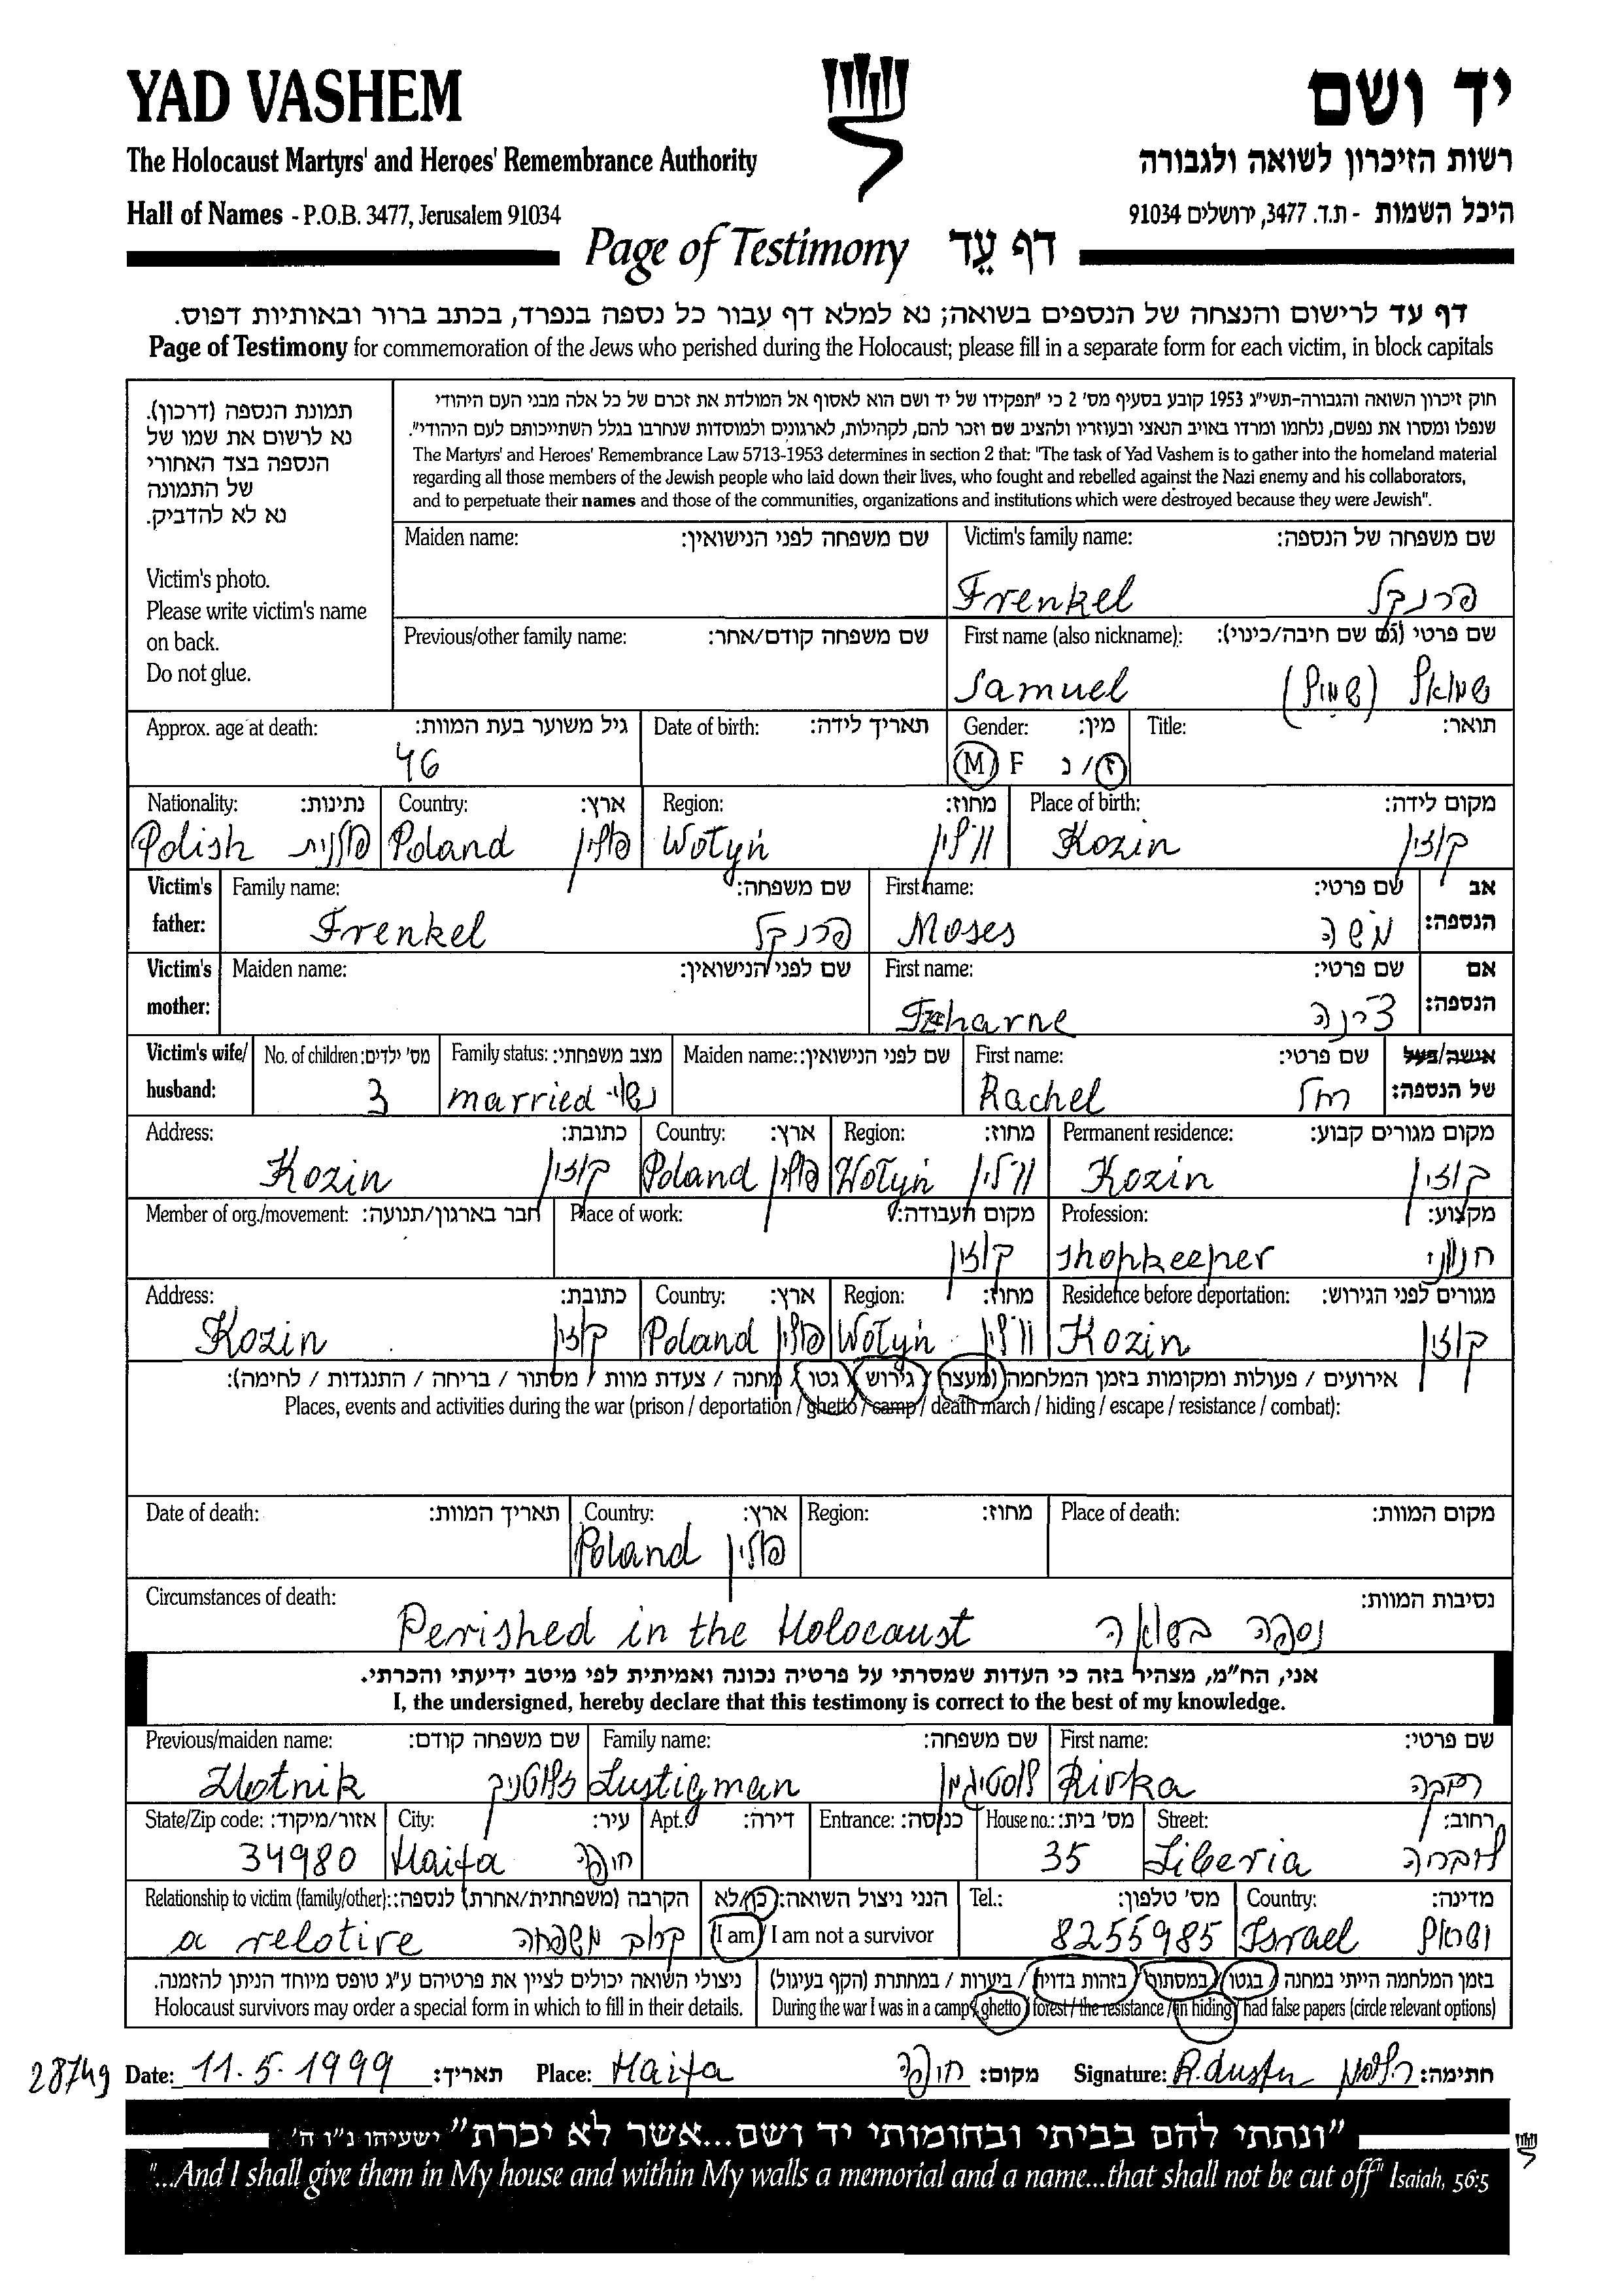 YAD VASHEM
יד ושם
The Holocaust Martyrs' and Heroes' Remembrance Authority
רשות הזיכרון לשואה ולגבורה
Hall of Names - P.O.B. 3477, Jerusalem 91034
היכל השמות - ת.ד. 3477, ירושלים 91034
Page of Testimony דף עֵד
דף עד לרישום והנצחה של הנספים בשואה; נא למלא דף עבור כל נספה בנפרד, בכתב ברור ובאותיות דפוס.
Page of Testimony for commemoration of the Jews who perished during the Holocaust; please fill in a separate form for each victim, in block capitals
תמונת הנספה (דרכון).
נא לרשום את שמו של
הנספה בצד האחורי
של התמונה
נא לא להדביק.
Victim's photo.
Please write victim's name
on back.
Do not glue.
חוק זיכרון השואה והגבורה-תשי"ג 1953 קובע בסעיף מס' 2 כי "תפקידו של יד ושם הוא לאסוף אל המולדת את זכרם של כל אלה מבני העם היהודי
שנפלו ומסרו את נפשם, נלחמו ומרדו באויב הנאצי ובעוזריו ולהציב שם וזכר להם, לקהילות, לארגונים ולמוסדות שנחרבו בגלל השתייכותם לעם היהודי".
The Martyrs' and Heroes' Remembrance Law 5713-1953 determines in section 2 that: "The task of Yad Vashem is to gather into the homeland material
regarding all those members of the Jewish people who laid down their lives, who fought and rebelled against the Nazi enemy and his collaborators,
and to perpetuate their names and those of the communities, organizations and institutions which were destroyed because they were Jewish".
Maiden name: שם משפחה לפני הנישואין:
Victim's family name: שם משפחה של הנספה:
Frenkel פרנקל
Previous/other family name: שם משפחה קודם/אחר:
First name (also nickname): שם פרטי (גם שם חיבה/כינוי):
Samuel שמואל (שמיל)
Approx. age at death: גיל משוער בעת המוות:
46
Date of birth: תאריך לידה:
Gender: מין:
M F ז/נ
Title: תואר:
Nationality: נתינות:
Polish פולנית
Country: ארץ:
Poland פולין
Region: מחוז:
Wołyń ווליין
Place of birth: מקום לידה:
Kozin קוזין
Victim's father: Family name: שם משפחה:
Frenkel פרנקל
First name: שם פרטי: אב הנספה:
Moses משה
Victim's mother: Maiden name: שם לפני הנישואין:
First name: שם פרטי: אם הנספה:
Tzharne צ'רנה
Victim's wife/husband: No. of children: מס' ילדים:
3
Family status: מצב משפחתי:
married נשוי
Maiden name: שם לפני הנישואין:
First name: שם פרטי: אישה/בעל של הנספה:
Rachel רחל
Address: כתובת:
Kozin קוזין
Country: ארץ:
Poland פולין
Region: מחוז:
Wołyń ווליין
Permanent residence: מקום מגורים קבוע:
Kozin קוזין
Member of org./movement: חבר בארגון/תנועה:
Place of work: מקום העבודה:
קוזין
Profession: מקצוע:
shopkeeper חנווני
Address: כתובת:
Kozin קוזין
Country: ארץ:
Poland פולין
Region: מחוז:
Wołyń ווליין
Residence before deportation: מגורים לפני הגירוש:
Kozin קוזין
אירועים / פעולות ומקומות בזמן המלחמה (מעצר / גירוש / גטו / מחנה / צעדת מוות / מסתור / בריחה / התנגדות / לחימה):
Places, events and activities during the war (prison / deportation / ghetto / camp / death march / hiding / escape / resistance / combat):
Date of death: תאריך המוות:
Country: ארץ:
Poland פולין
Region: מחוז:
Place of death: מקום המוות:
Circumstances of death: נסיבות המוות:
Perished in the Holocaust נספה בשואה
אני, הח"מ, מצהיר בזה כי העדות שמסרתי על פרטיה נכונה ואמיתית לפי מיטב ידיעתי והכרתי.
I, the undersigned, hereby declare that this testimony is correct to the best of my knowledge.
Previous/maiden name: שם משפחה קודם:
Zlotnik זלוטניק
Family name: שם משפחה:
Lustigman לוסטיגמן
First name: שם פרטי:
Rivka רבקה
State/Zip code: אזור/מיקוד:
34980
City: עיר:
Haifa חיפה
Apt.: דירה:
Entrance: כניסה:
House no.: מס' בית:
35
Street: רחוב:
Liberia ליבריה
Relationship to victim (family/other): הקרבה (משפחתית/אחרת) לנספה:
a relative קרוב משפחה
הנני ניצול השואה: כן/לא
I am / I am not a survivor
Tel.: מס' טלפון:
8255985
Country: מדינה:
Israel ישראל
ניצולי השואה יכולים לציין את פרטיהם ע"ג טופס מיוחד הניתן להזמנה.
Holocaust survivors may order a special form in which to fill in their details.
בזמן המלחמה הייתי במחנה / בגטו / במסתור / בזהות בדויה / ביערות / במחתרת (הקף בעיגול)
During the war I was in a camp / ghetto / forest / the resistance / in hiding / had false papers (circle relevant options)
28749
Date: 11.5.1999 תאריך:
Place: Haifa חיפה מקום:
Signature: חתימה:
"ונתתי להם בביתי ובחומותי יד ושם...אשר לא יכרת" ישעיהו נ"ו ה'
"...And I shall give them in My house and within My walls a memorial and a name...that shall not be cut off" Isaiah, 56:5